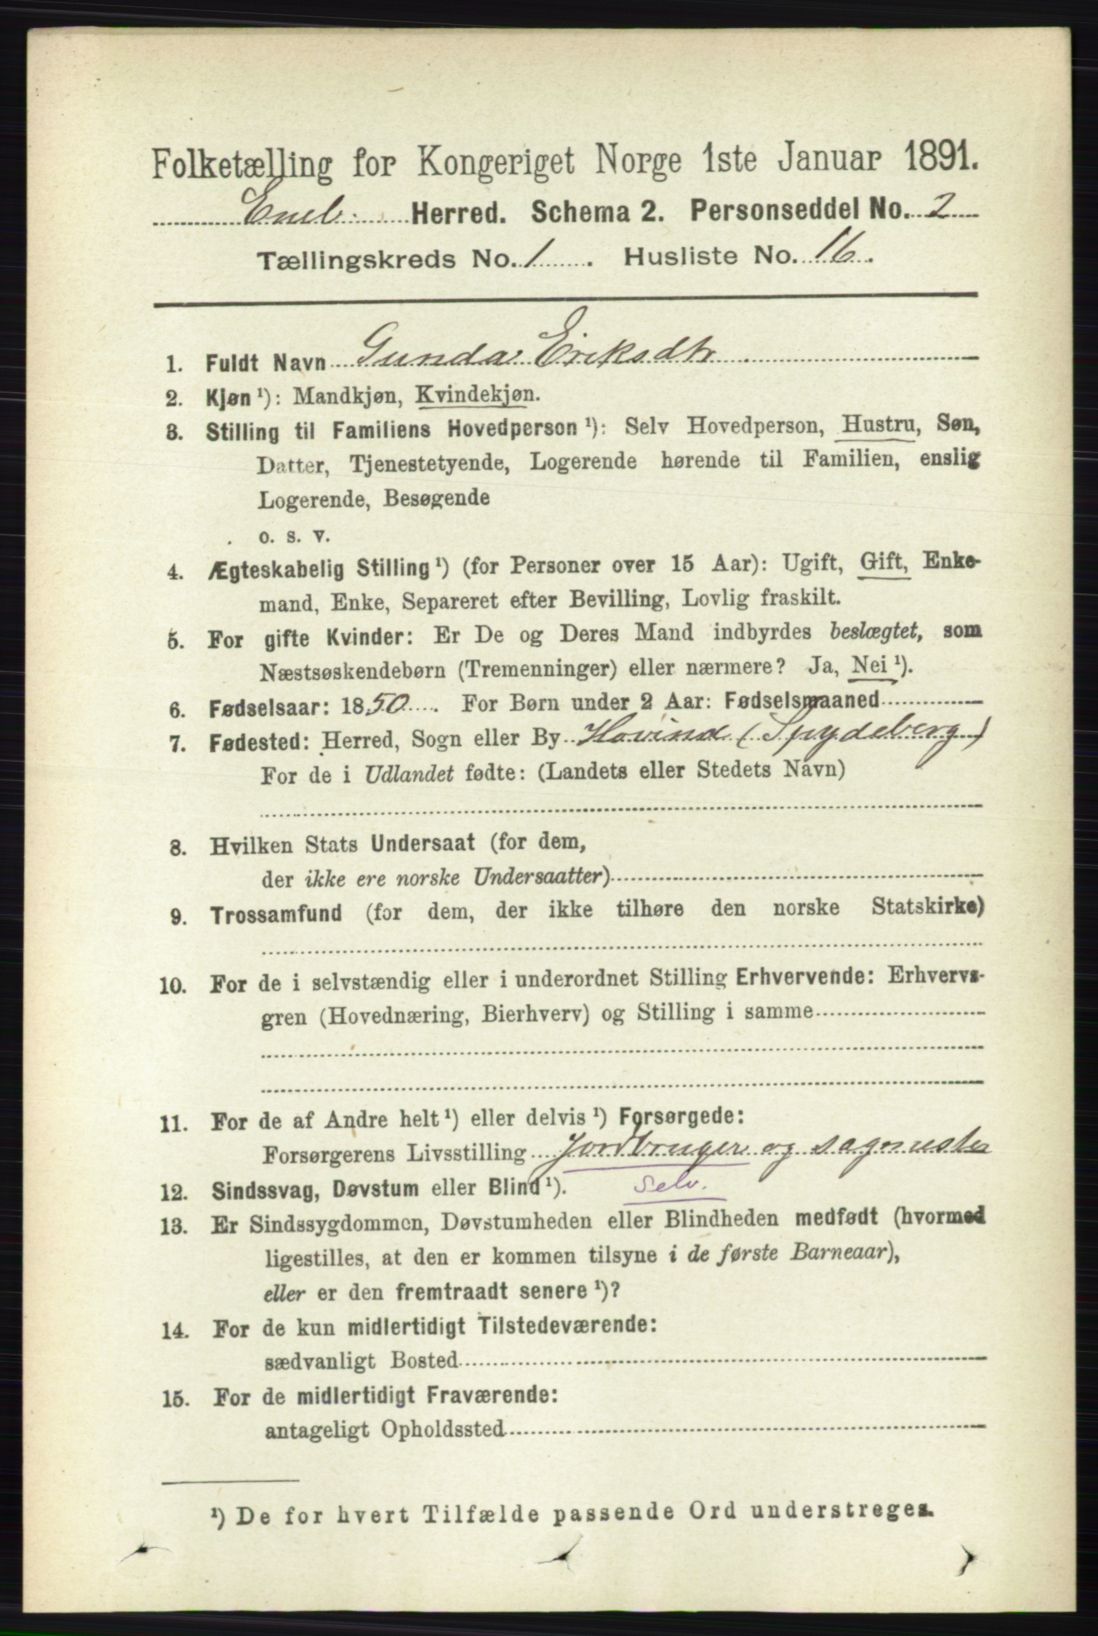 Folketælling for Kongeriget Norge 1ste Januar 1891.
Herred. Schema 2. Personseddel No. 2
Tællingskreds No. 1. Husliste No. 16.
1. Fuldt Navn Gunda Eriksdtr
2. Kjøn ¹): Mandkjøn, Kvindekjøn.
3. Stilling til Familiens Hovedperson ¹): Selv Hovedperson, Hustru, Søn,
Datter, Tjenestetyende, Logerende hørende til Familien, enslig
Logerende, Besøgende
o. s. v.
4. Ægteskabelig Stilling ¹) (for Personer over 15 Aar): Ugift, Gift, Enke-
mand, Enke, Separeret efter Bevilling, Lovlig fraskilt.
5. For gifte Kvinder: Er De og Deres Mand indbyrdes beslægtet, som
Næstsøskendebørn (Tremenninger) eller nærmere? Ja, Nei ¹).
6. Fødselsaar: 1850. For Børn under 2 Aar: Fødselsmaaned
7. Fødested: Herred, Sogn eller By Hovind (Spydeberg)
For de i Udlandet fødte: (Landets eller Stedets Navn)
8. Hvilken Stats Undersaat (for dem,
der ikke ere norske Undersaatter)
9. Trossamfund (for dem, der ikke tilhøre den norske Statskirke)
10. For de i selvstændig eller i underordnet Stilling Erhvervende: Erhvervs-
gren (Hovednæring, Bierhverv) og Stilling i samme
11. For de af Andre helt ¹) eller delvis ¹) Forsørgede:
Forsørgerens Livsstilling Jordbruger og sagmester
12. Sindssvag, Døvstum eller Blind ¹). Selv.
13. Er Sindssygdommen, Døvstumheden eller Blindheden medfødt (hvormed
ligestilles, at den er kommen tilsyne i de første Barneaar),
eller er den fremtraadt senere ¹)?
14. For de kun midlertidigt Tilstedeværende:
sædvanligt Bosted
15. For de midlertidigt Fraværende:
antageligt Opholdssted
¹) De for hvert Tilfælde passende Ord understreges.